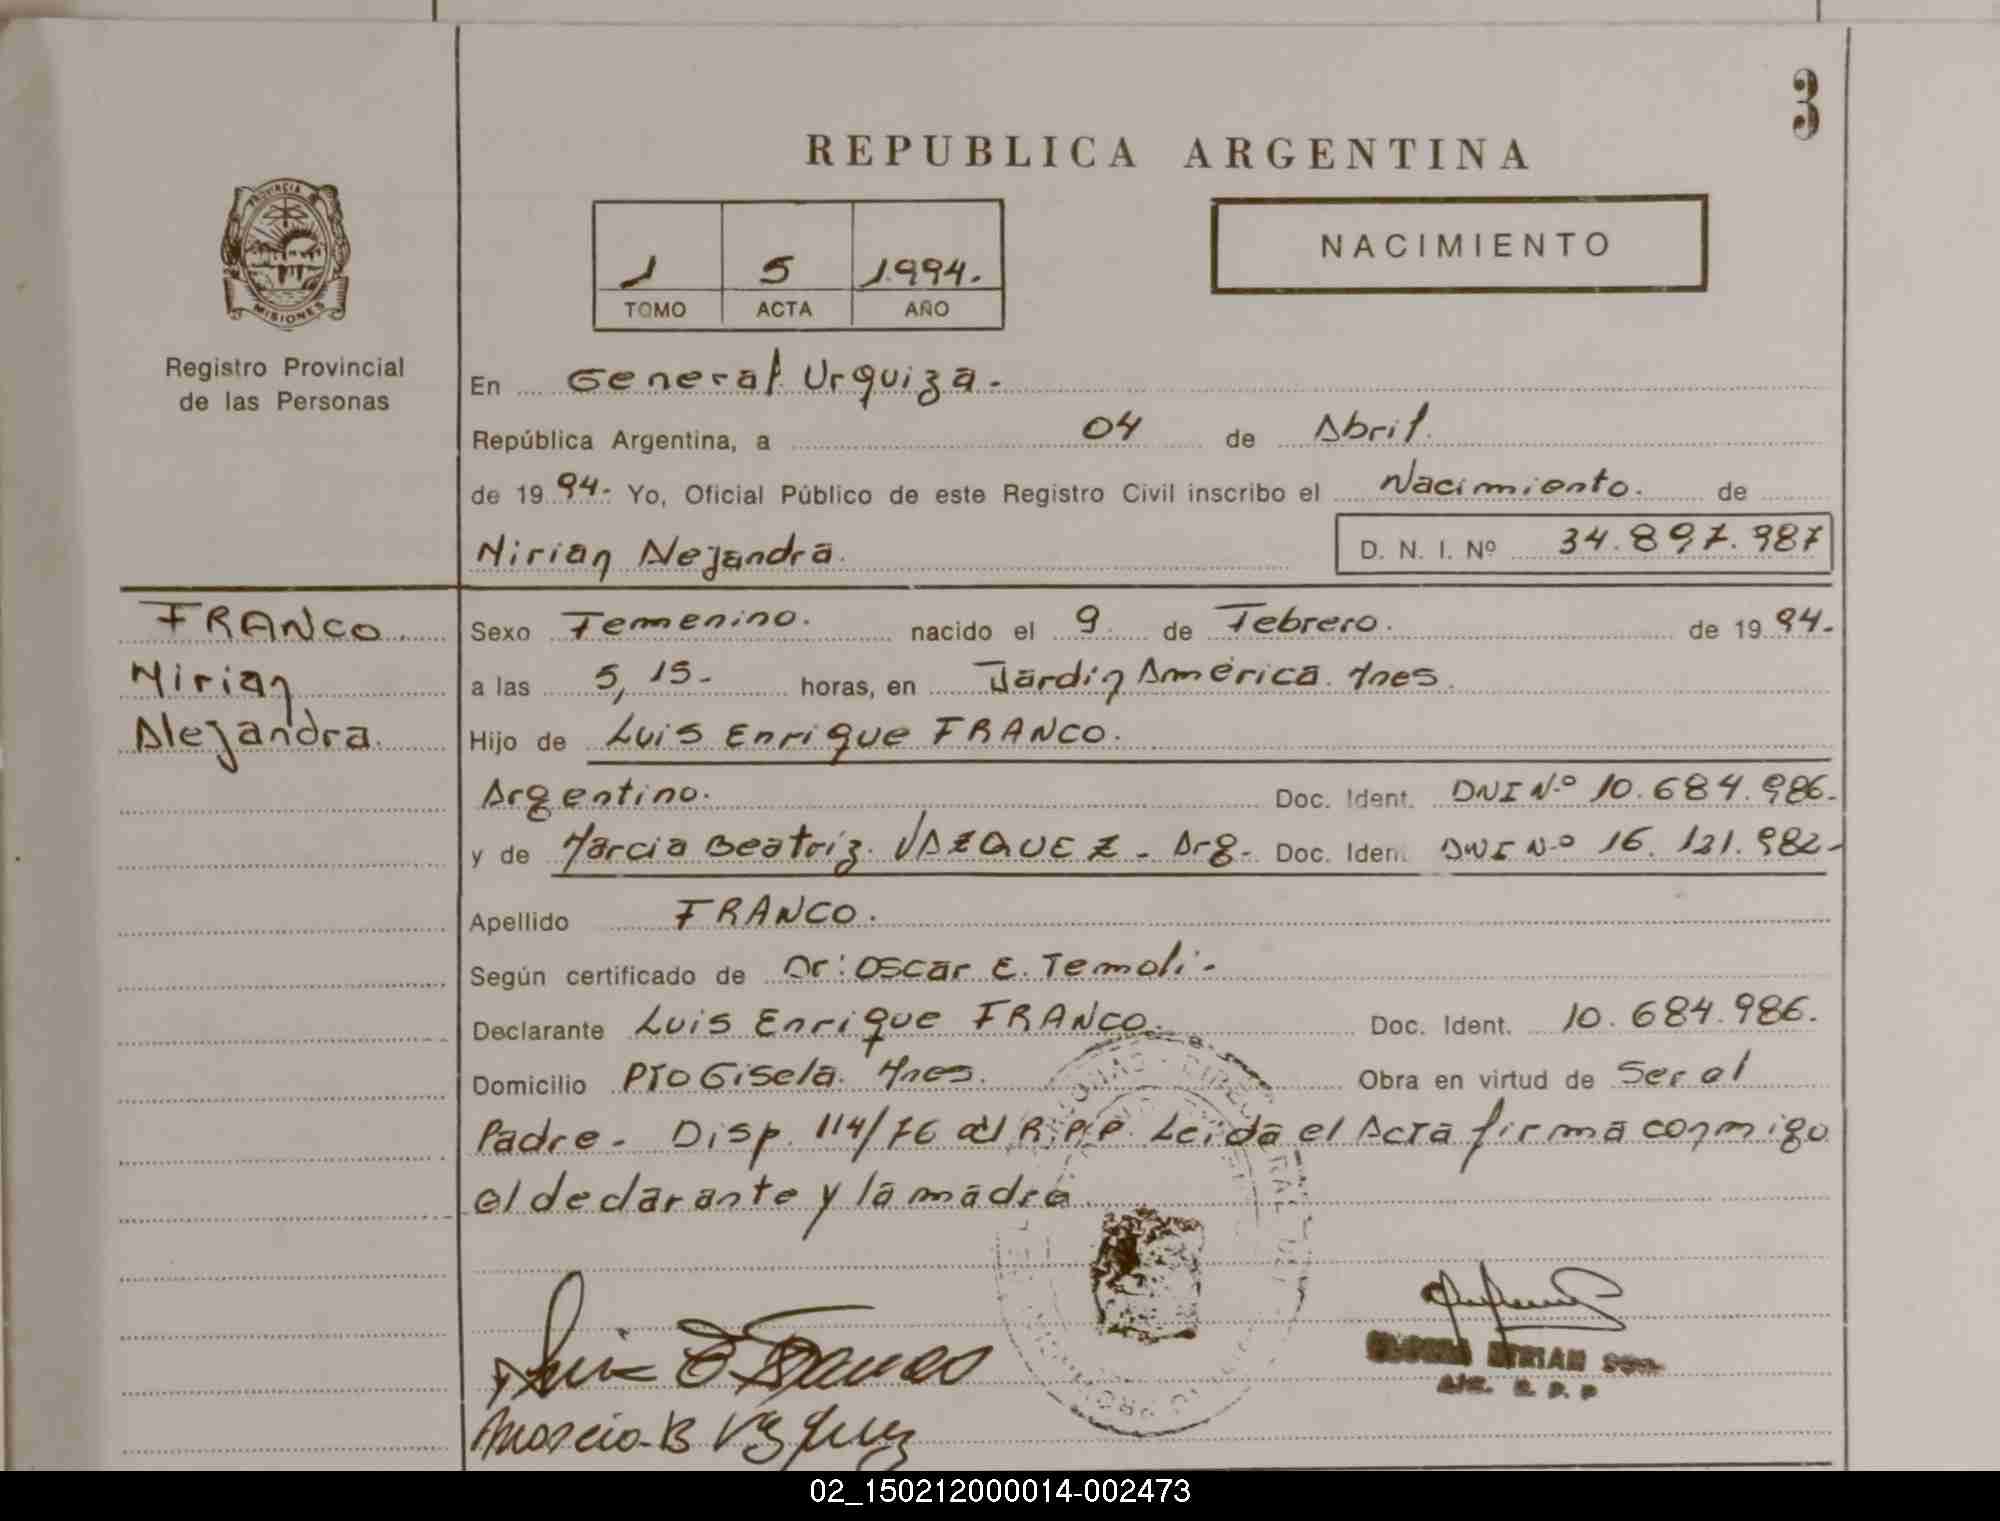 3
REPUBLICA ARGENTINA
PROVINCIA
MISIONES
Registro Provincial
de las Personas
1 5 1994.
TOMO ACTA AÑO
NACIMIENTO
En General Urquiza.
República Argentina, a 04 de Abril.
de 1994. Yo, Oficial Público de este Registro Civil inscribo el Nacimiento. de
Mirian Alejandra. D. N. I. Nº 34.897.987
FRANCO.
Mirian
Alejandra.
Sexo Femenino. nacido el 9 de Febrero. de 1994.
a las 5,15. horas, en Jardin América. Mnes.
Hijo de Luis Enrique FRANCO.
Argentino. Doc. Ident. DNI Nº 10.684.986.
y de Marcia Beatriz. VAZQUEZ. Arg. Doc. Iden. DNI Nº 16.121.982
Apellido FRANCO.
Según certificado de Dr: Oscar E. Temoli.
Declarante Luis Enrique FRANCO. Doc. Ident. 10.684.986.
Domicilio Pto Gisela. Mnes. Obra en virtud de Ser el
Padre. Disp. 114/76 del R.P.P. Leída el Acta firma conmigo
el declarante y la madre
Luis E Franco
Marcia B Vazquez
MIRIAN
R. P. P
02_150212000014-002473